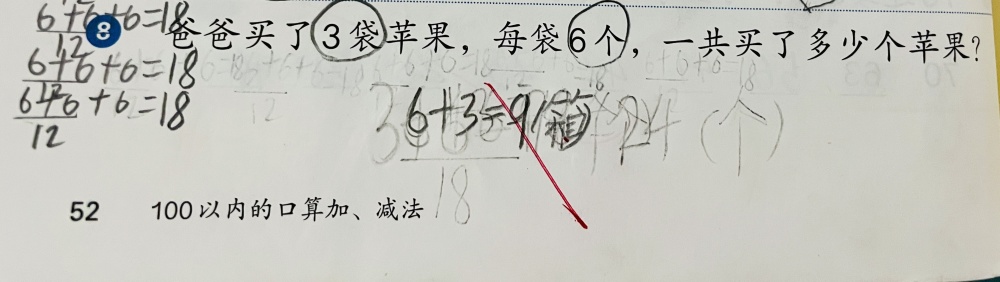 6+6+6=18
12
8 爸爸买了3袋苹果，每袋6个，一共买了多少个苹果?
6+6+6=18
12
6+6+6=18
12
6+3=9(箱)
24(个)
18
52 100以内的口算加、减法